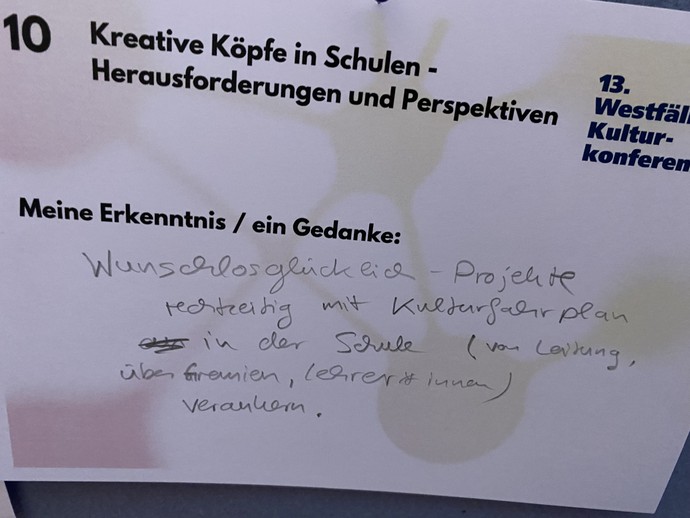 10
Kreative Köpfe in Schulen -
Herausforderungen und Perspektiven
13.
Westfäl
Kultur-
konferen
Meine Erkenntnis / ein Gedanke:
Wunschlosglücklich - Projekte
rechtzeitig mit Kulturfahrplan
in der Schule (von Leitung,
über Gremien, Lehrer*innen)
verankern.